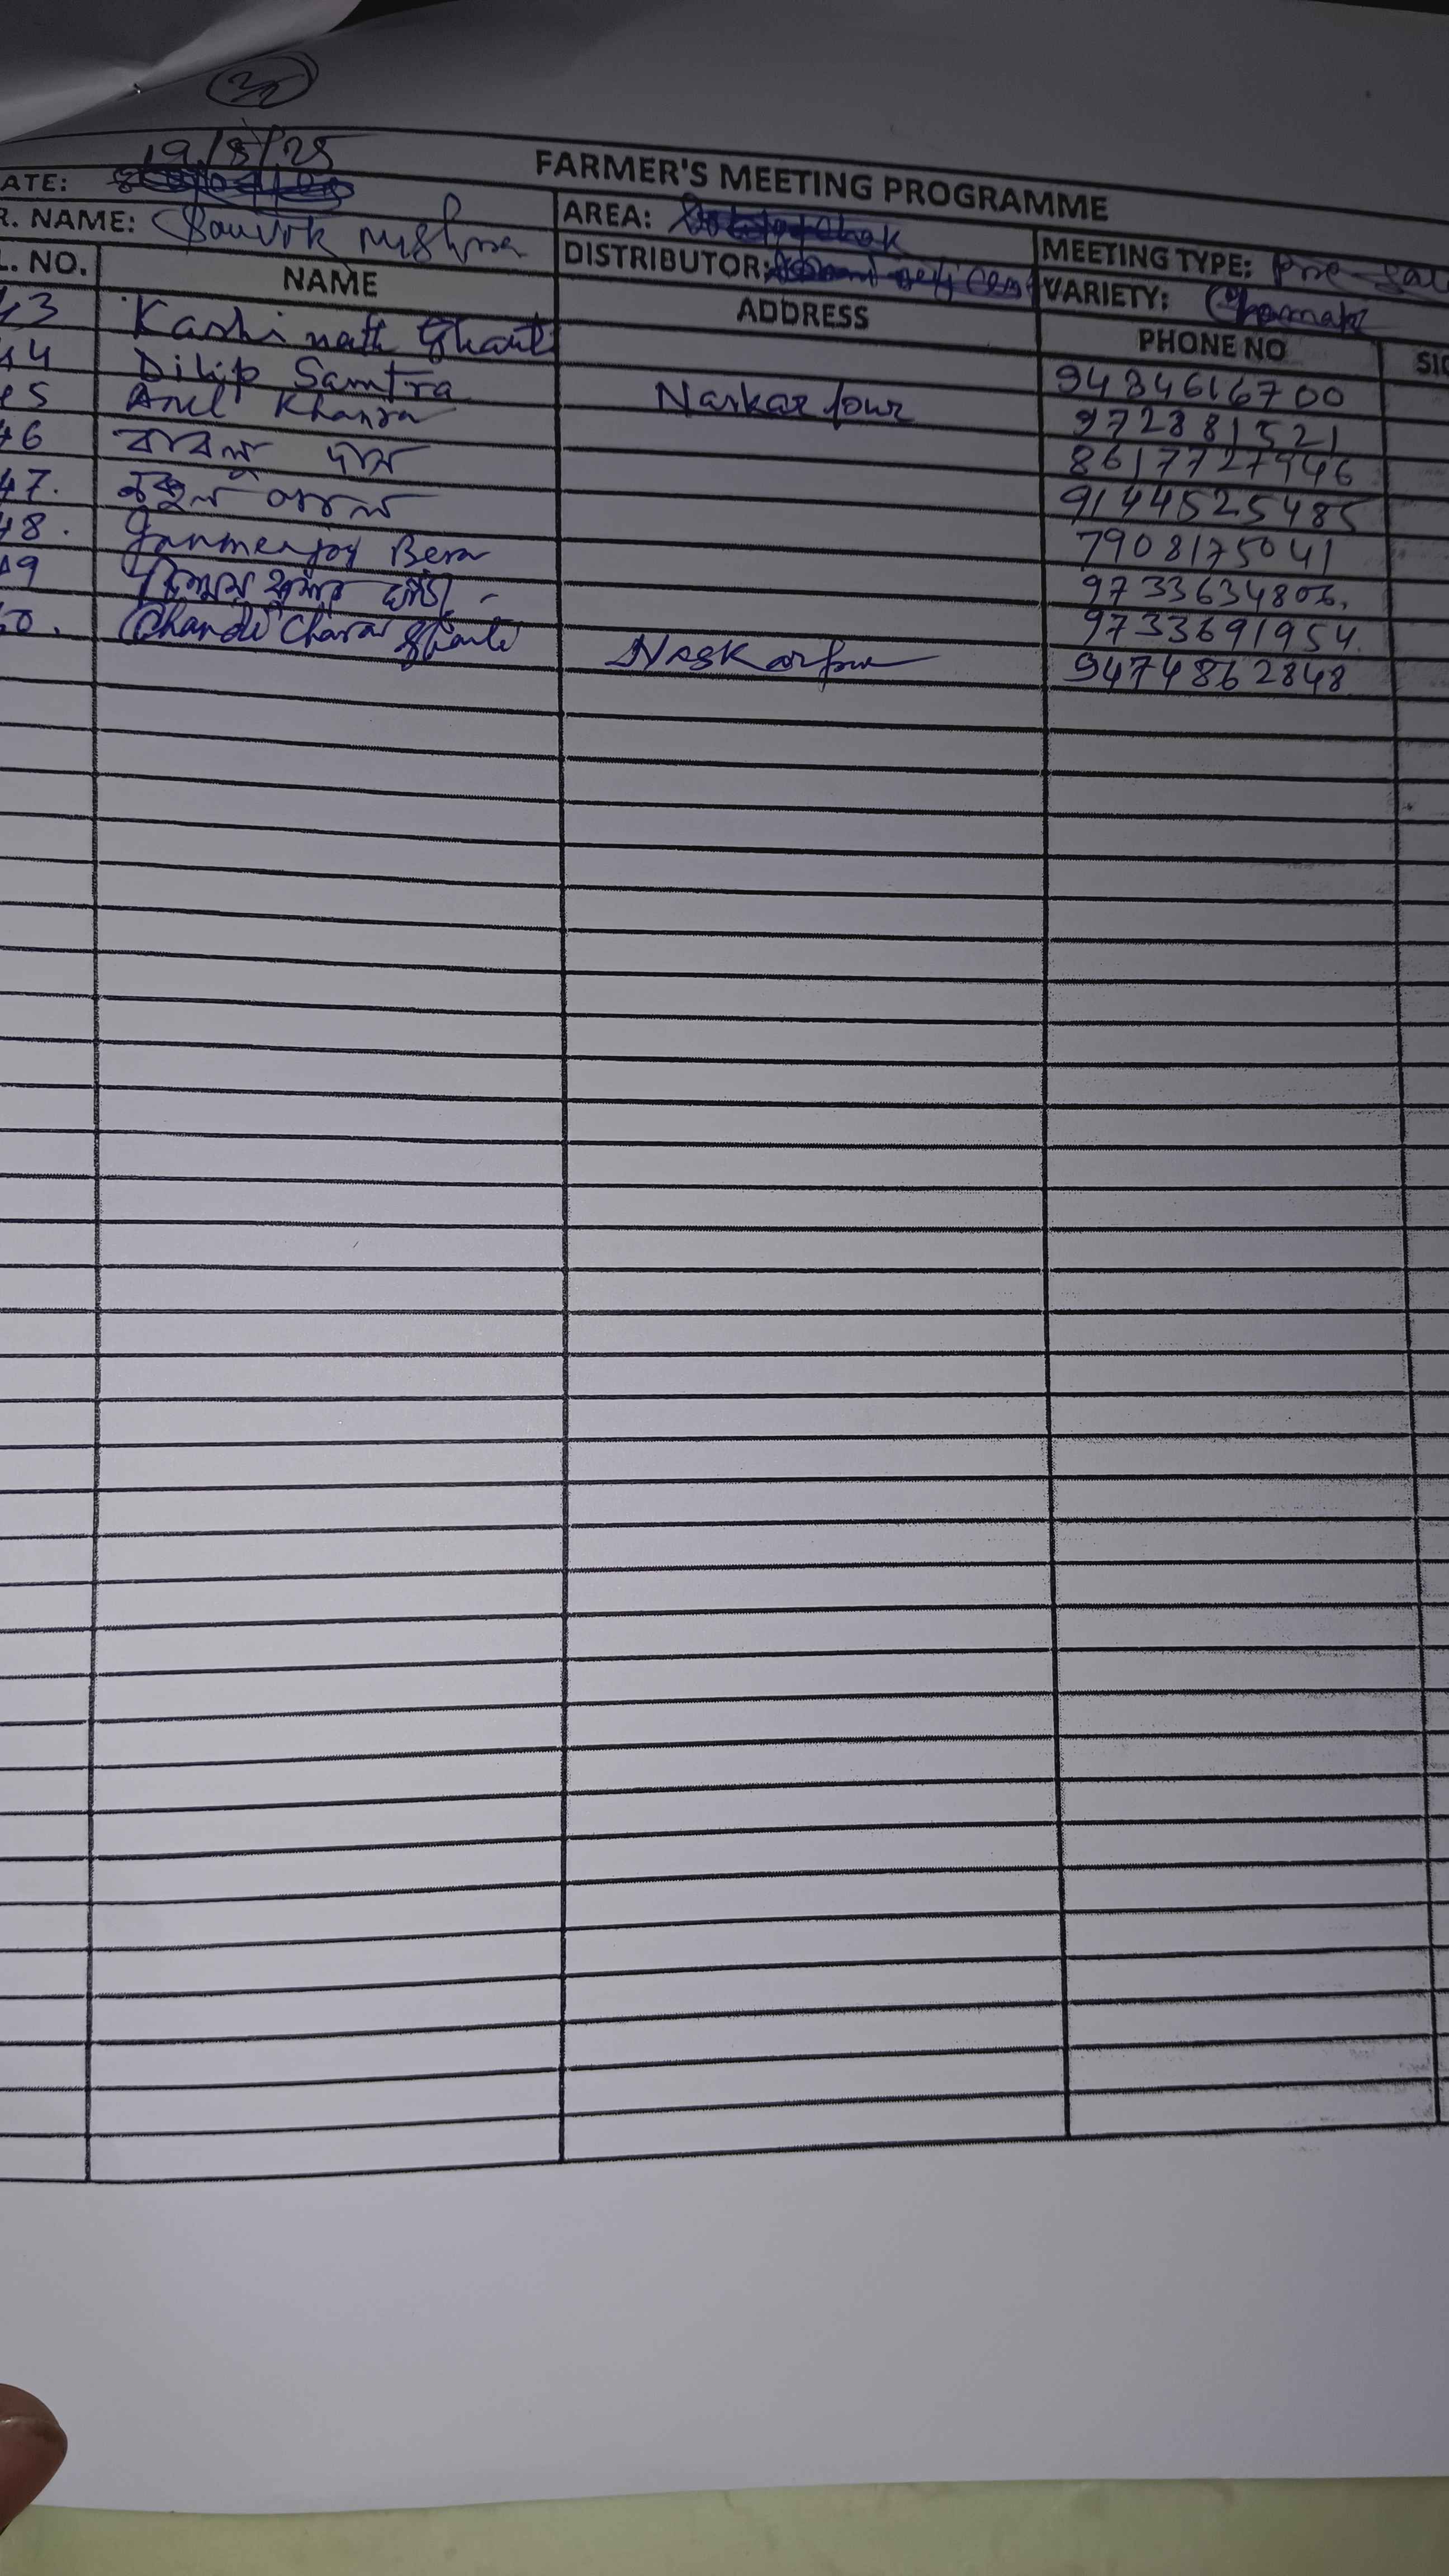 19/8/25
FARMER'S MEETING PROGRAMME
ATE:
R. NAME: Souvik Mishra
AREA:
MEETING TYPE: Pre
DISTRIBUTOR:
VARIETY: Chamak
L. NO. NAME ADDRESS PHONE NO SIG
43 Kashi nath Ghanti 9434616700
44 Dilip Samtra Naskar pur 9723881521
45 Anil Khanra 8617727946
46 বাবলু দাস 9144525485
47. 7908175041
48. Janmenjoy Bera 9733634806.
49 কুমার 9733691954.
50. Chandi Charan Ghanti Naskarpur 9474862848